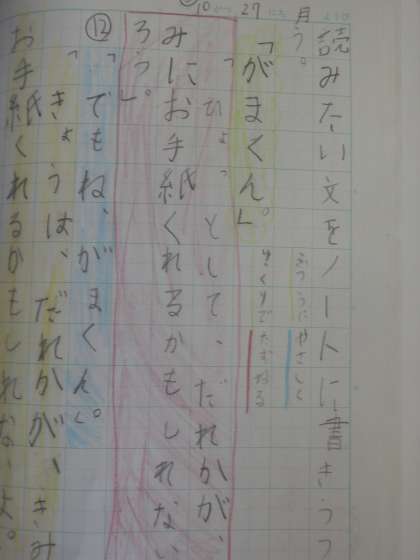 10 がつ 27 にち 月 ようび
読みたい文をノートに書きうつ
う。
ふつうに やさしく
「がまくん」。
たずねる
「ひょっとして、だれかが、
みにお手紙くれるかもしれない
ろう」。
⑫「でもね、がまくん」。
「きょうは、だれかが、きみ
お手紙くれるかもしれないよ。